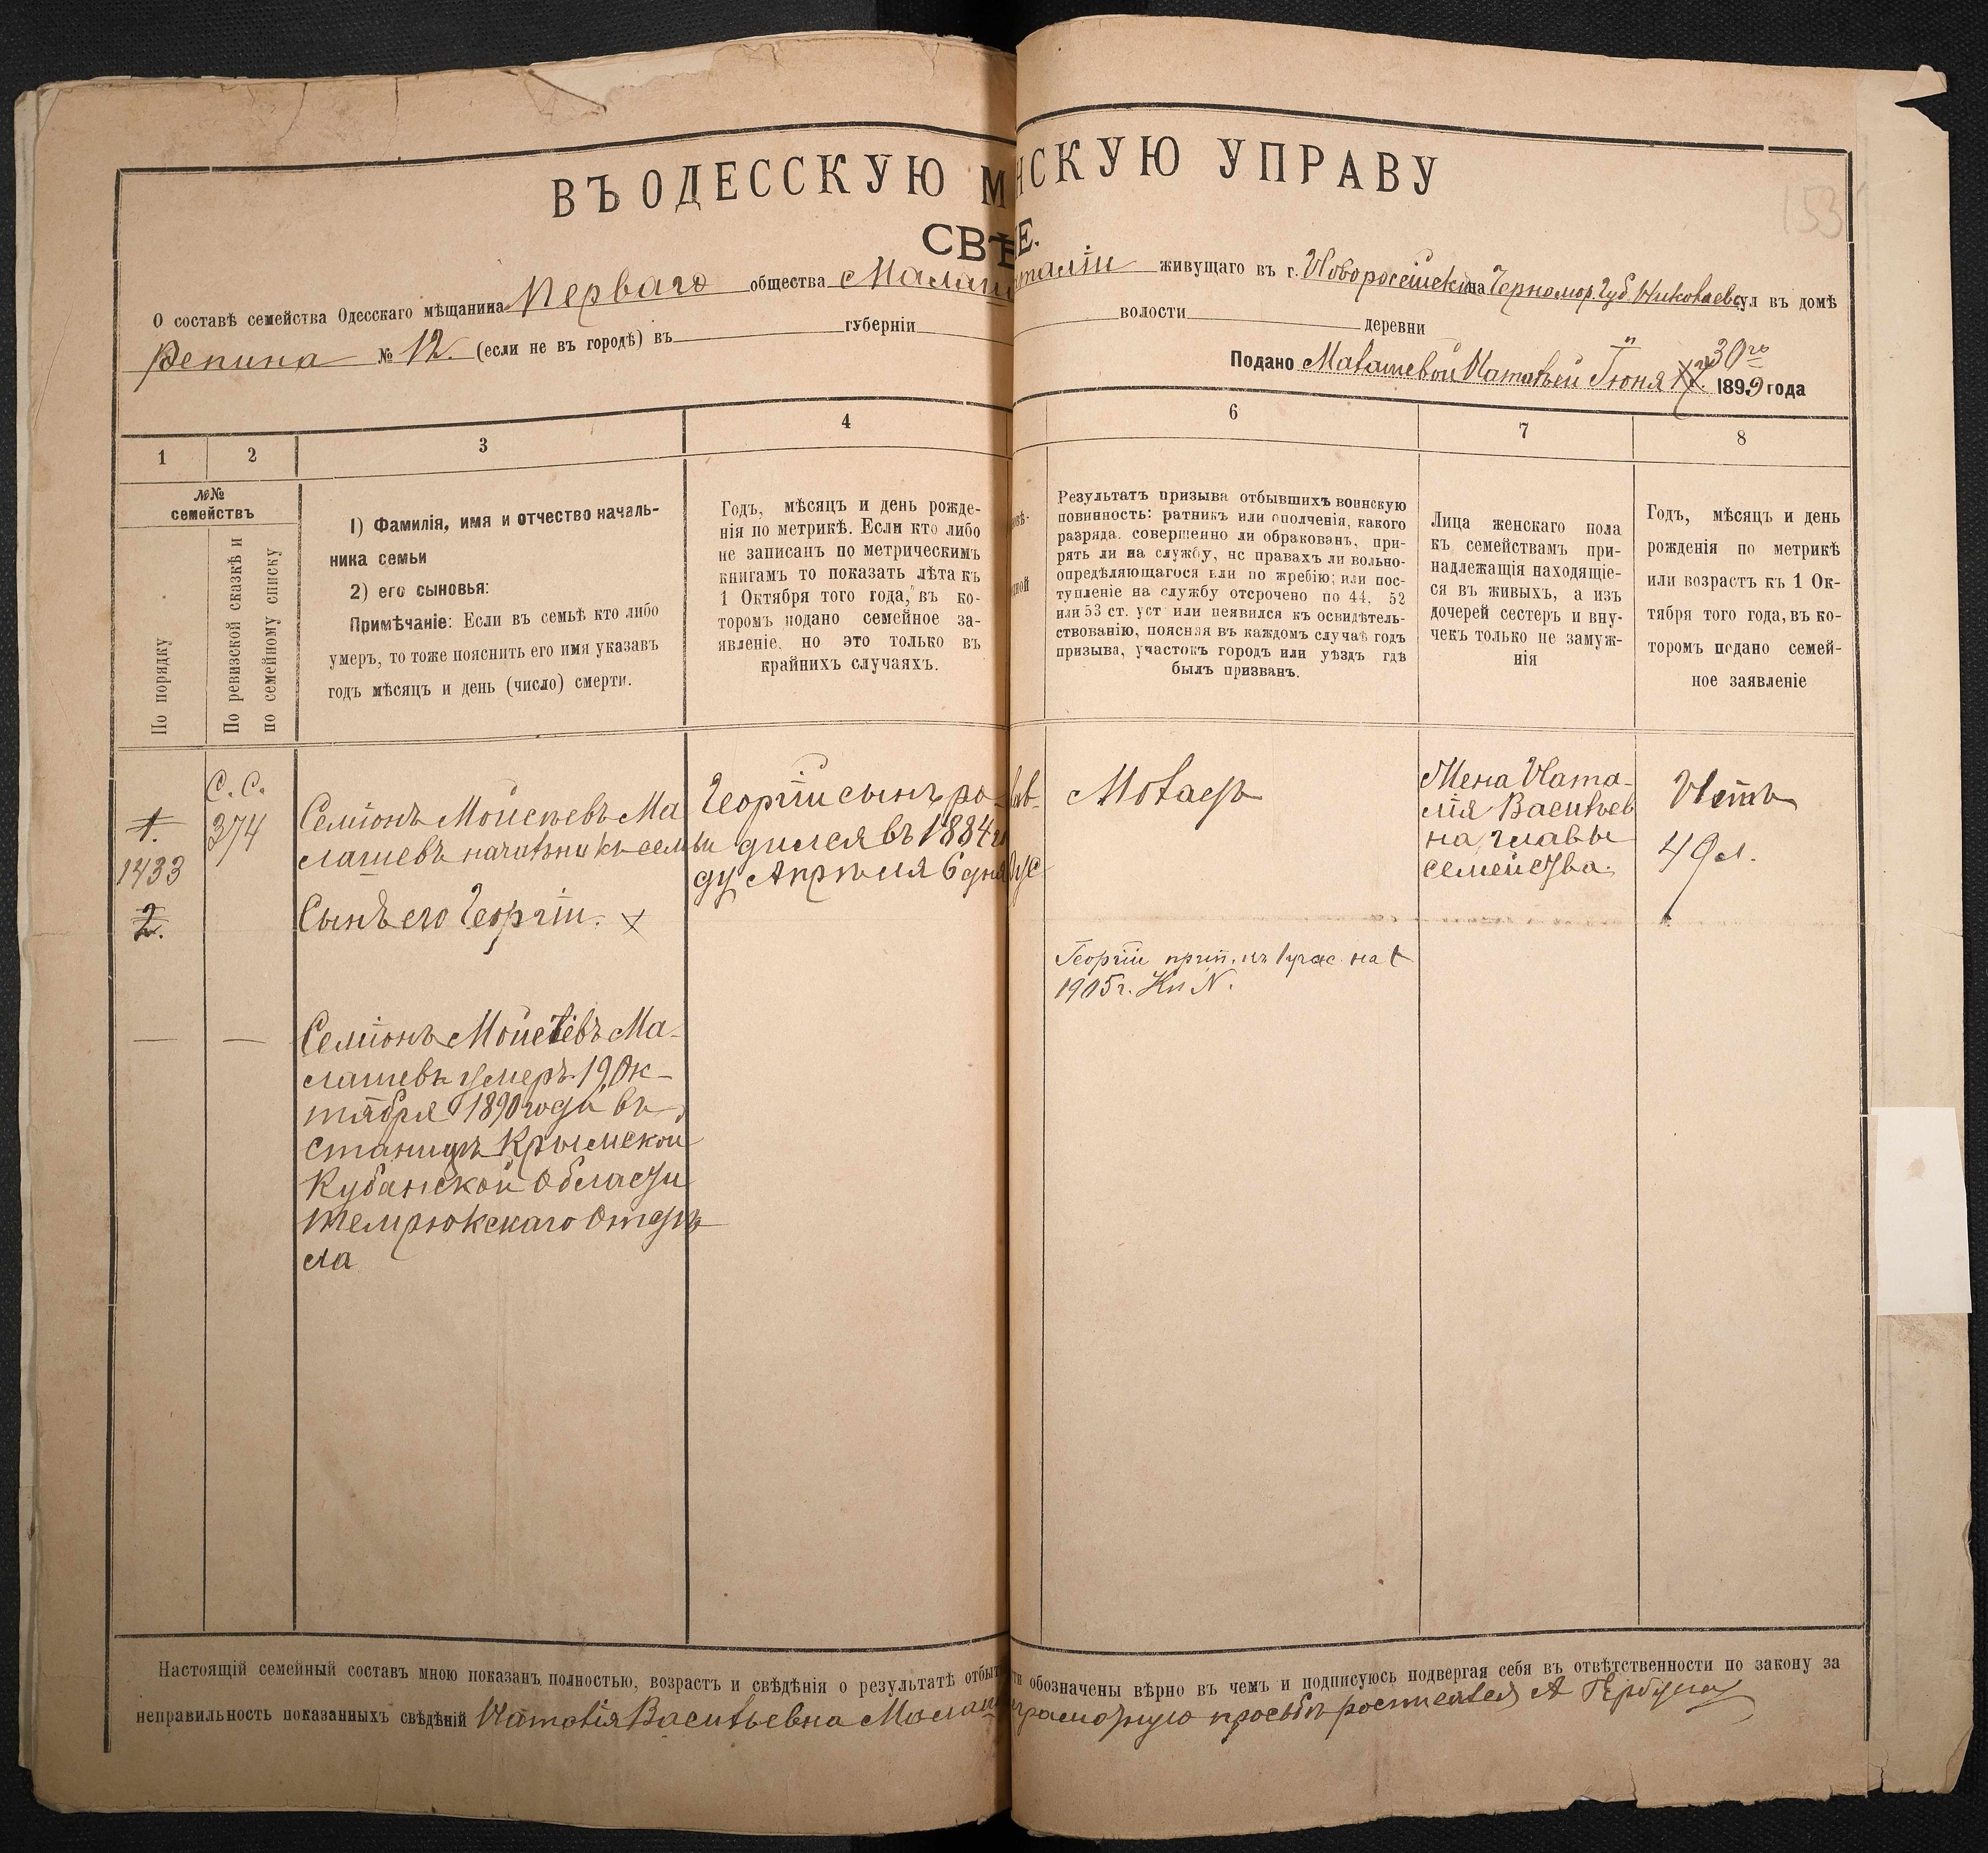 ВЪ ОДЕССКУЮ М НСКУЮ УПРАВУ
СВѢ Е.
О составѣ семейства Одесскаго мѣщанина Перваго общества Малаш таліи живущаго въ г. Новороссійск на Черномор. Губ. Николаевс ул въ домѣ
Репина № 12. (если не въ городѣ) въ губерніи волости деревни
Подано Малашевой Наталіей Іюня 30го 1899 года
1 2 3 4 6 7 8
№№ семействъ
По порядку
По ревизской сказкѣ и
по семейному списку
1) Фамилія, имя и отчество началь-
ника семьи
2) его сыновья:
Примѣчаніе: Если въ семьѣ кто либо
умеръ, то тоже пояснить его имя указавъ
годъ мѣсяцъ и день (число) смерти.
Годъ, мѣсяцъ и день рожде-
нія по метрикѣ. Если кто либо
не записанъ по метрическимъ
книгамъ то показать лѣта къ
1 Октября того года, въ ко-
торомъ подано семейное за-
явленіе, но это только въ
крайнихъ случаяхъ.
Результатъ призыва отбывшихъ воинскую
повинность: ратникъ или ополченія, какого
разряда, совершенно ли обракованъ, при-
рятъ ли на службу, нс правахъ ли вольно-
опредѣляющагося или по жребію; или пос-
тупленіе на службу отсрочено по 44, 52
или 53 ст. уст или неявился къ освидѣтель-
ствованію, поясняя въ каждомъ случаѣ годъ
призыва, участокъ городъ или уѣздъ гдѣ
былъ призванъ.
Лица женскаго пола
къ семействамъ при-
надлежащія находящіе-
ся въ живыхъ, а изъ
дочерей сестеръ и вну-
чекъ только не замуж-
нія
Годъ, мѣсяцъ и день
рожденія по метрикѣ
или возрастъ къ 1 Ок-
тября того года, въ ко-
торомъ подано семей-
ное заявленіе
1.
1433
2.
С. С.
374
Семіонъ Мойсѣевъ Ма
лашевъ начальникъ семьи
Сынъ его Георгій. х
Георгій сынъ ро-
дился въ 1884 го
ду Апрѣля 6 дня
Молодъ
Жена Ната-
лія Васильев
на главы
семейства.
Нѣтъ
49 л.
Георгій прип. къ 1 учас. на
1905 г. Кн N.
Семіонъ Мойсеевъ Ма-
лашевъ умеръ 19 Ок-
тября 1890 года въ
станицѣ Крымской
Кубанской Области
Темрюкскаго Отдѣ-
ла
Настоящій семейный составъ мною показанъ полностью, возрастъ и свѣдѣнія о результатѣ отбыт ти обозначены вѣрно въ чемъ и подписуюсь подвергая себя въ отвѣтственности по закону за
неправильность показанныхъ свѣдѣній Наталія Васильевна Малаш грамотную просьбѣ росписался А
153